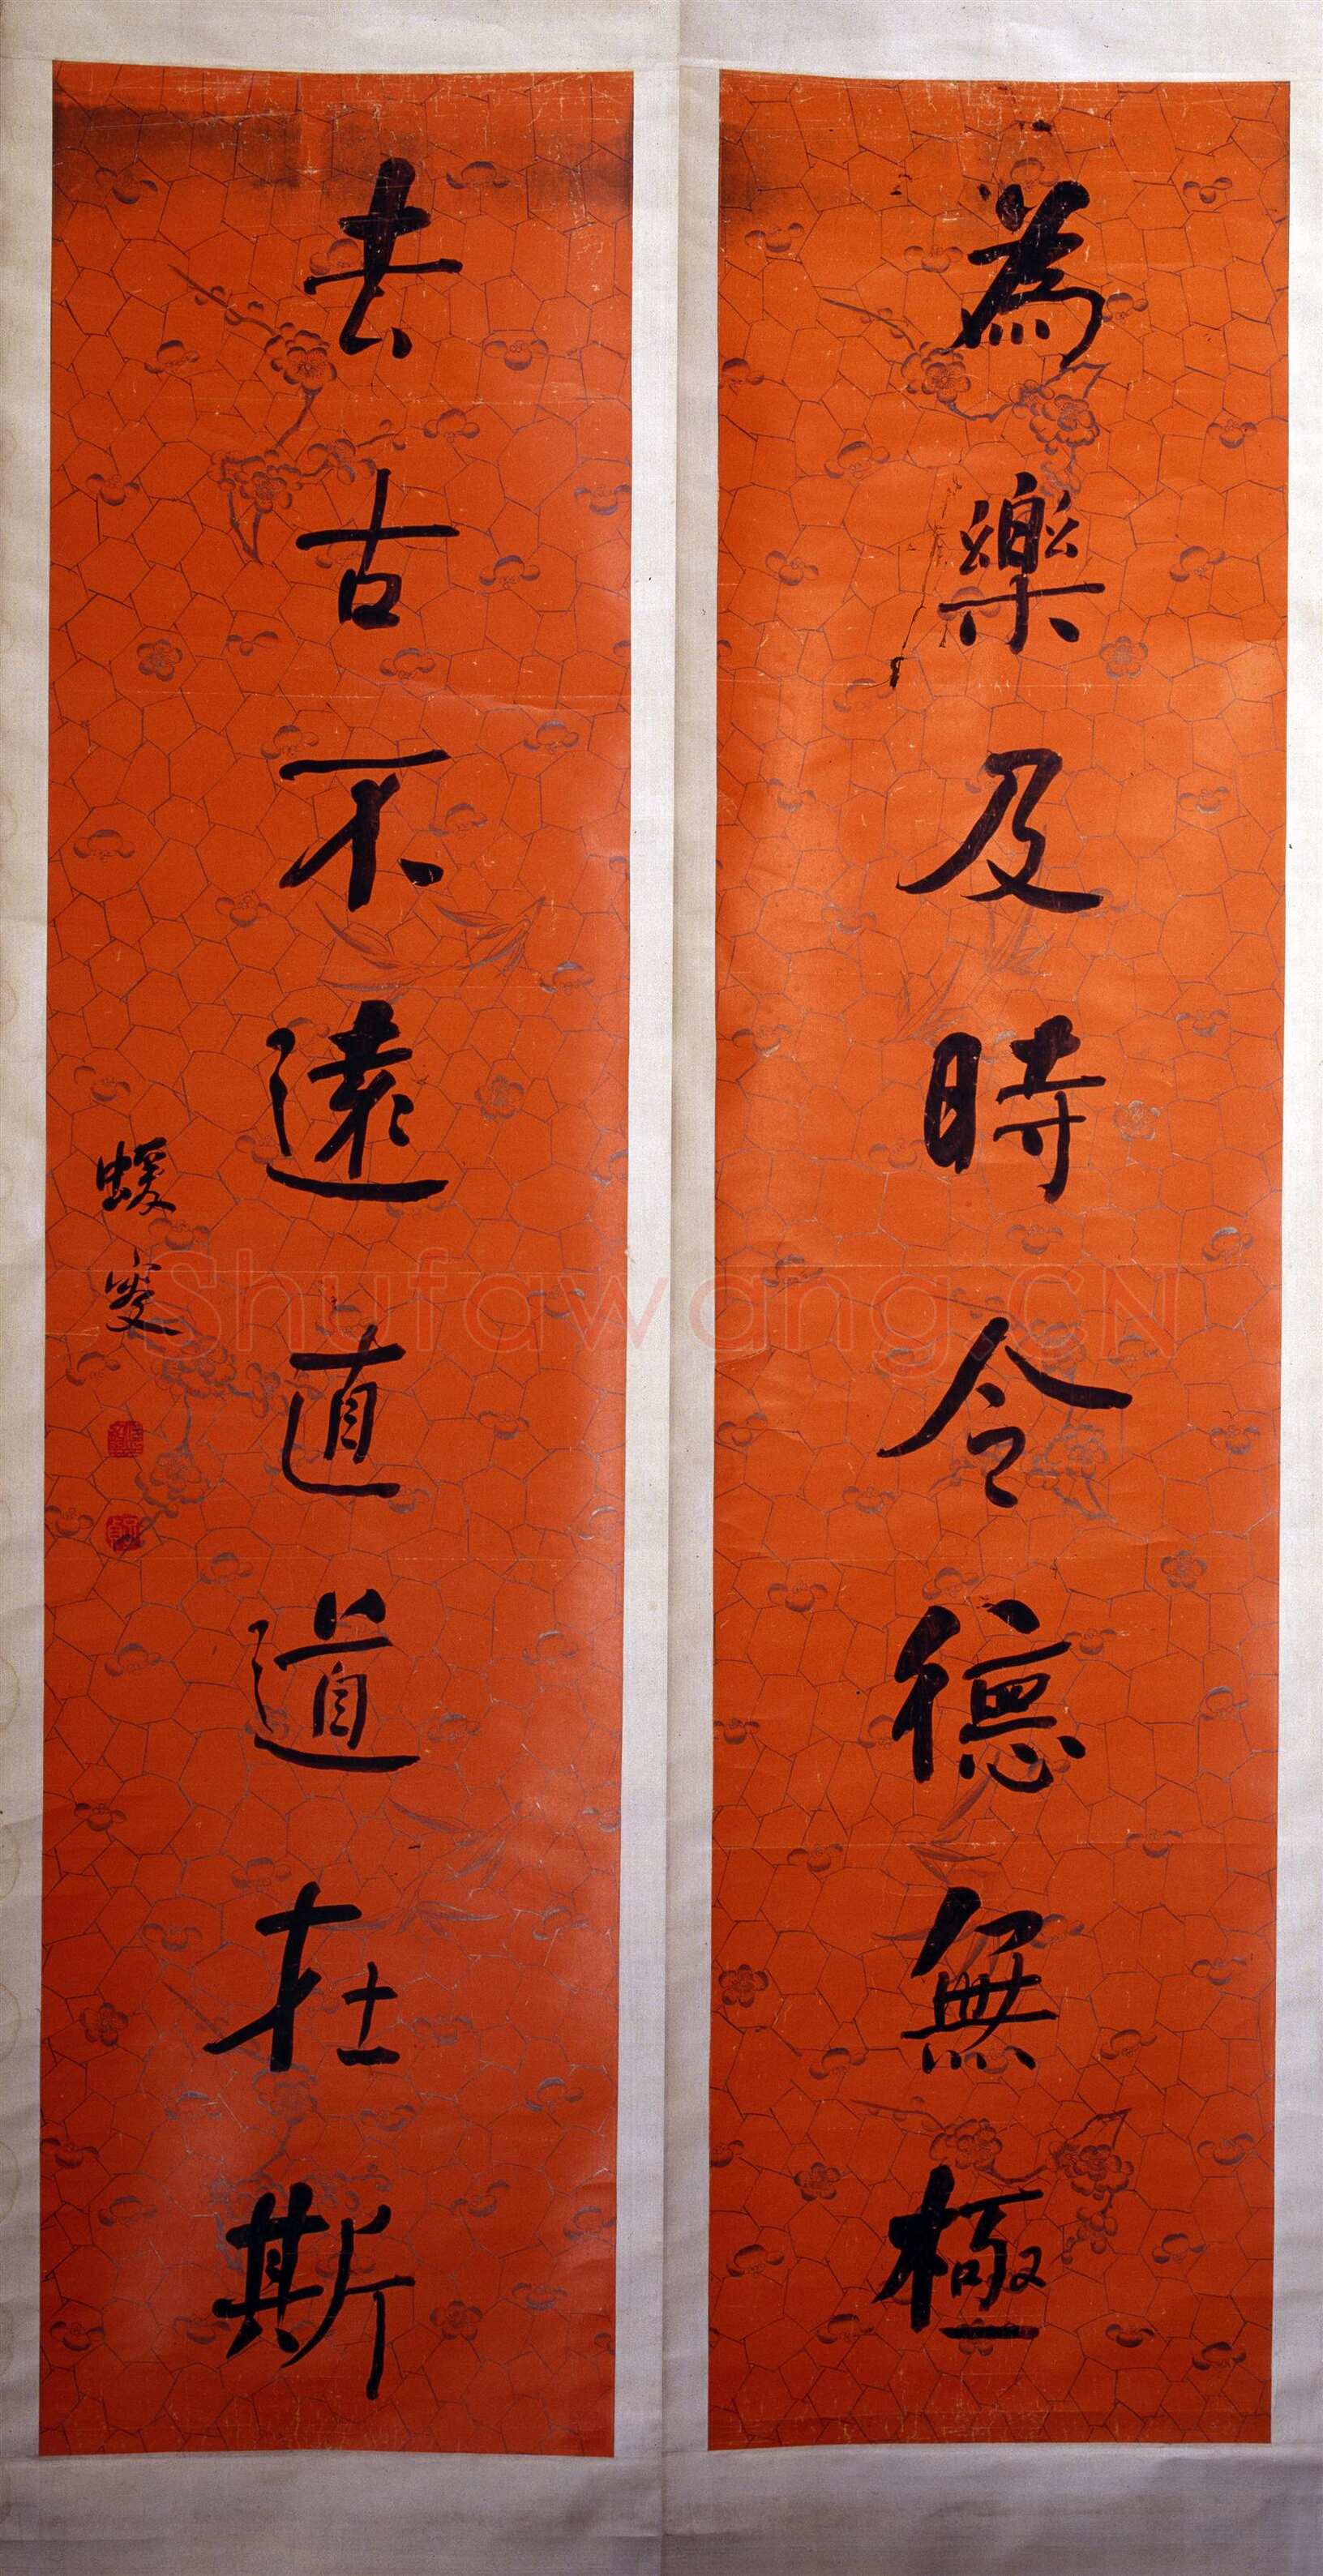 為樂及時令德無極
去古不遠直道在斯
蝯叟
Shufawang.CN